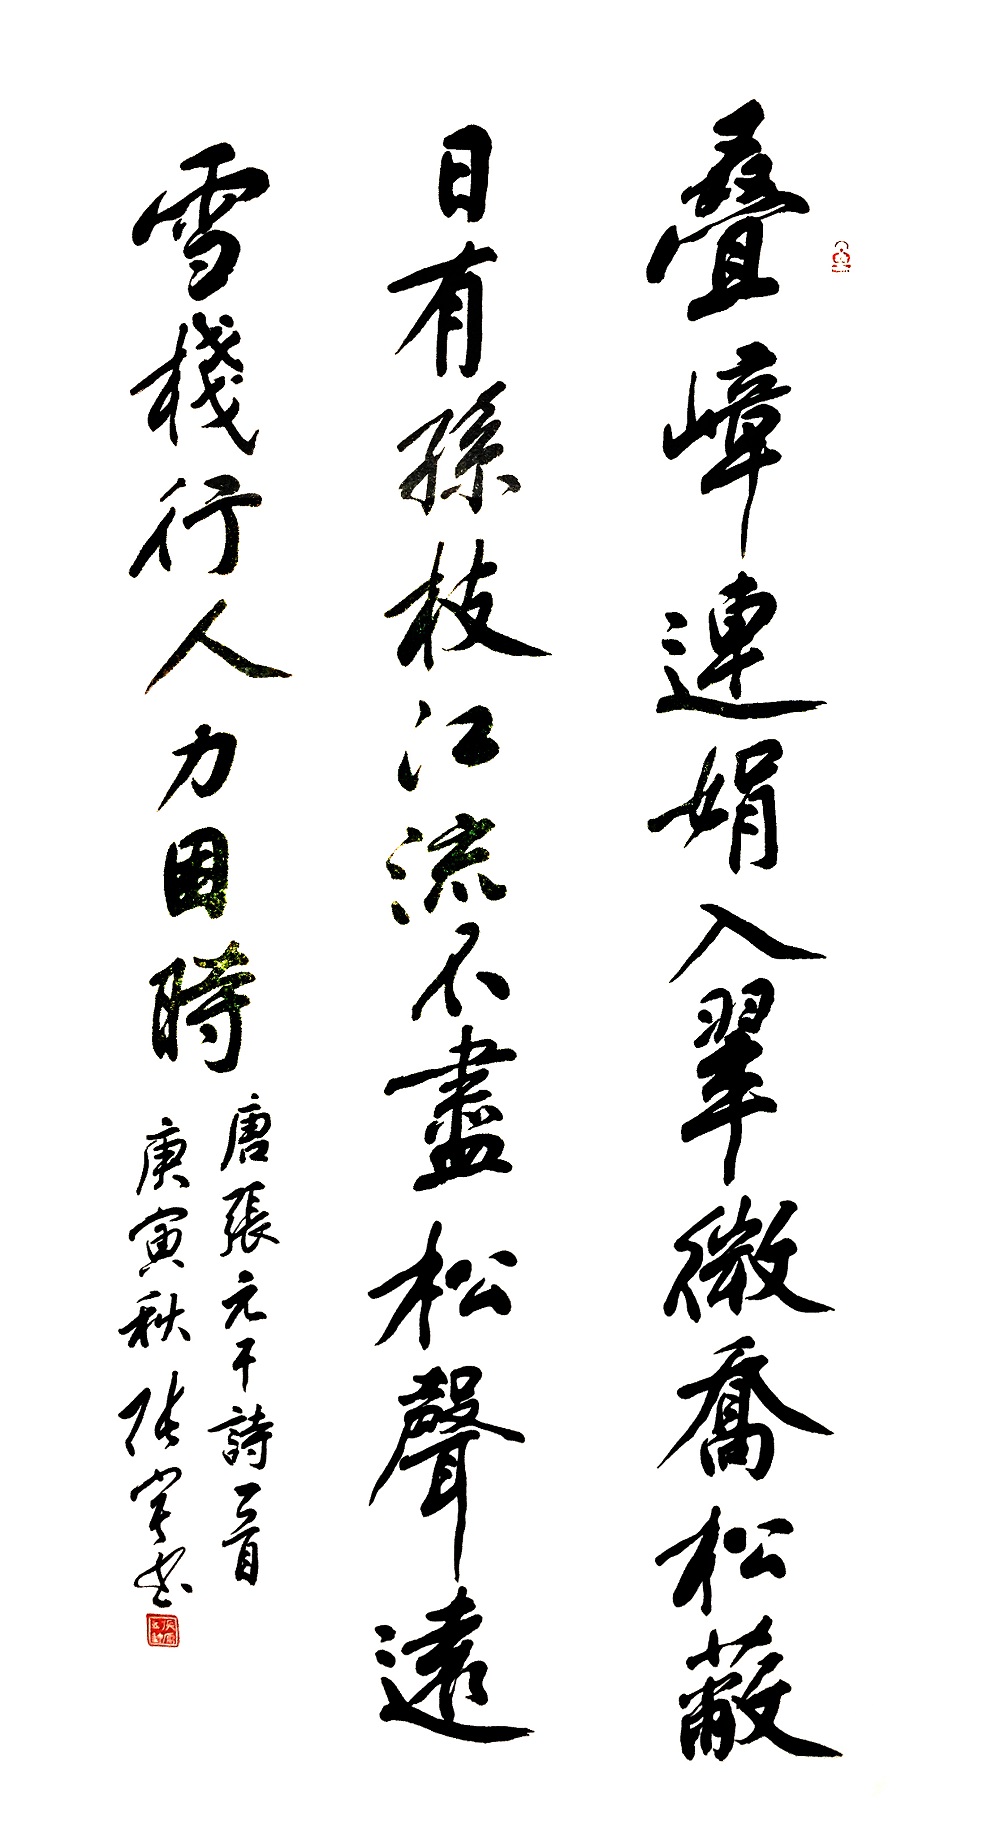 叠嶂連娟入翠微喬松蔽
日有孫枝江流不盡松聲遠
雪棧行人力困時
唐張元干詩一首
庚寅秋張宇书